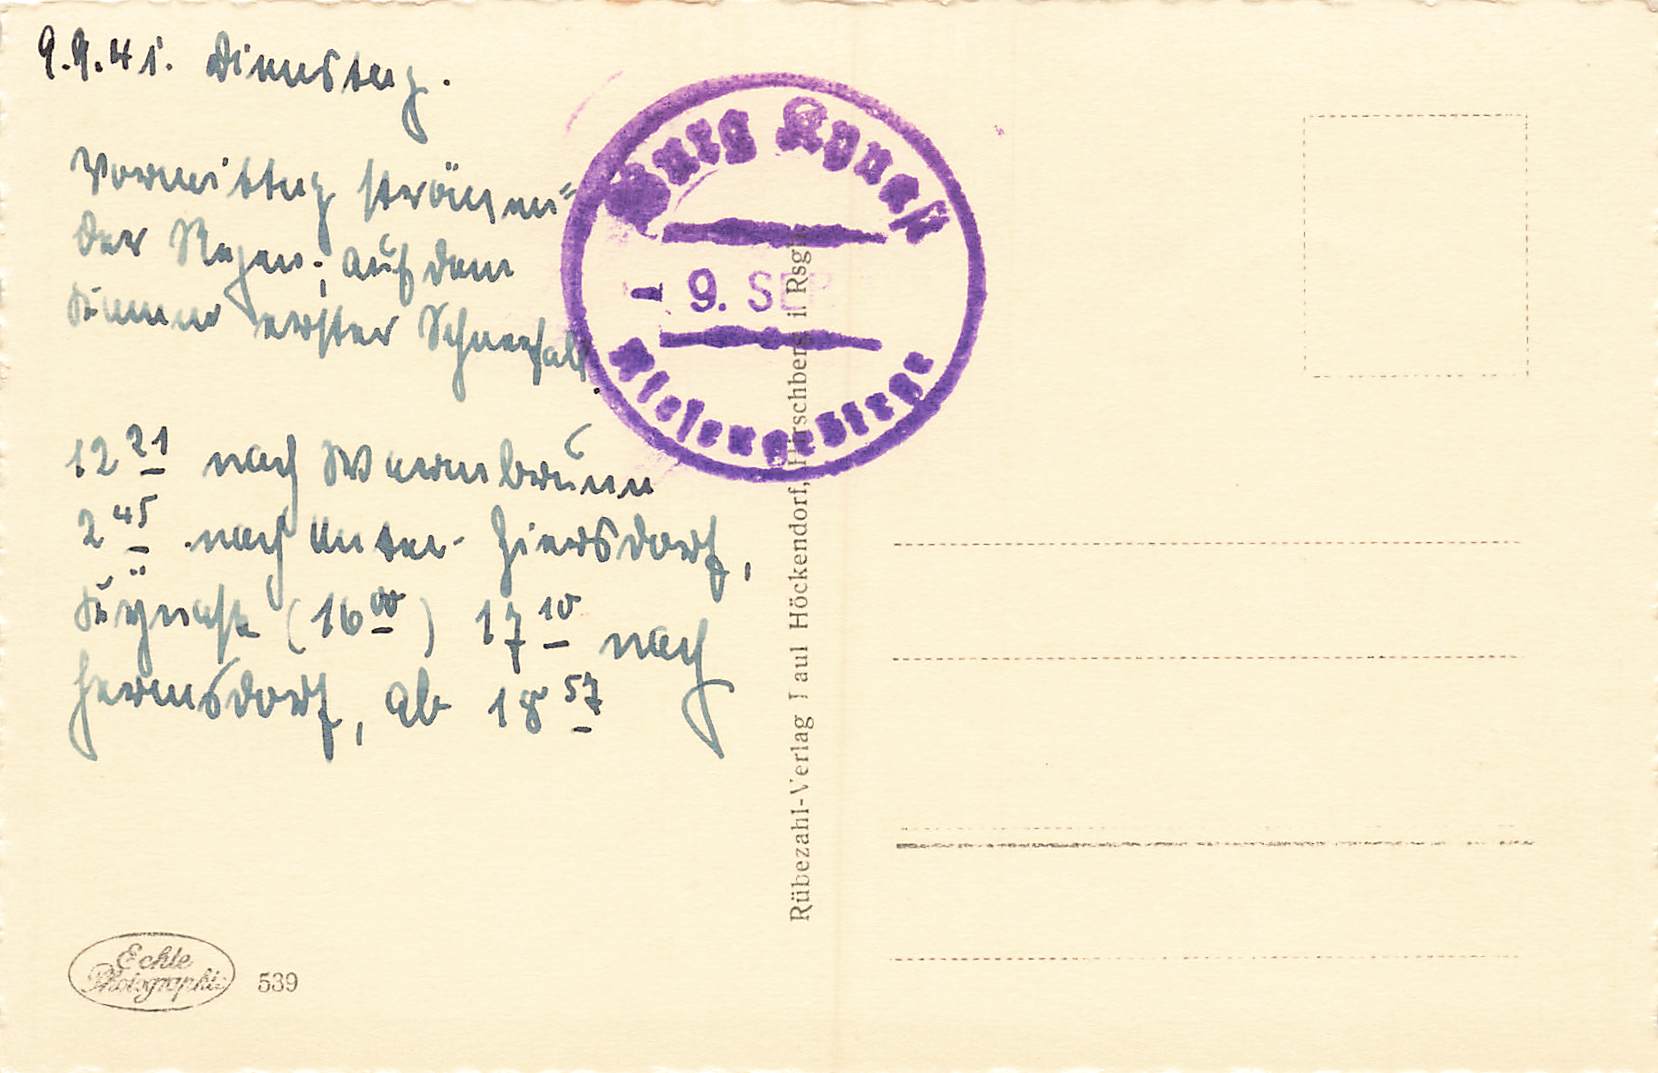 9.9.41. Dienstag.
Vormittag strömen-
der Regen; auf dem
Kamme erster Schneefall.
12 21 nach Warmbrunn
2 45 nach Unter-Giersdorf,
Kynast (16 00) 17 10 nach
Hermsdorf, ab 18 57
Burg Kynast
- 9. SEP
Riesengebirge
Rübezahl-Verlag Paul Höckendorf, Hirschberg i. Rsgb.
Echte
Photographie
539